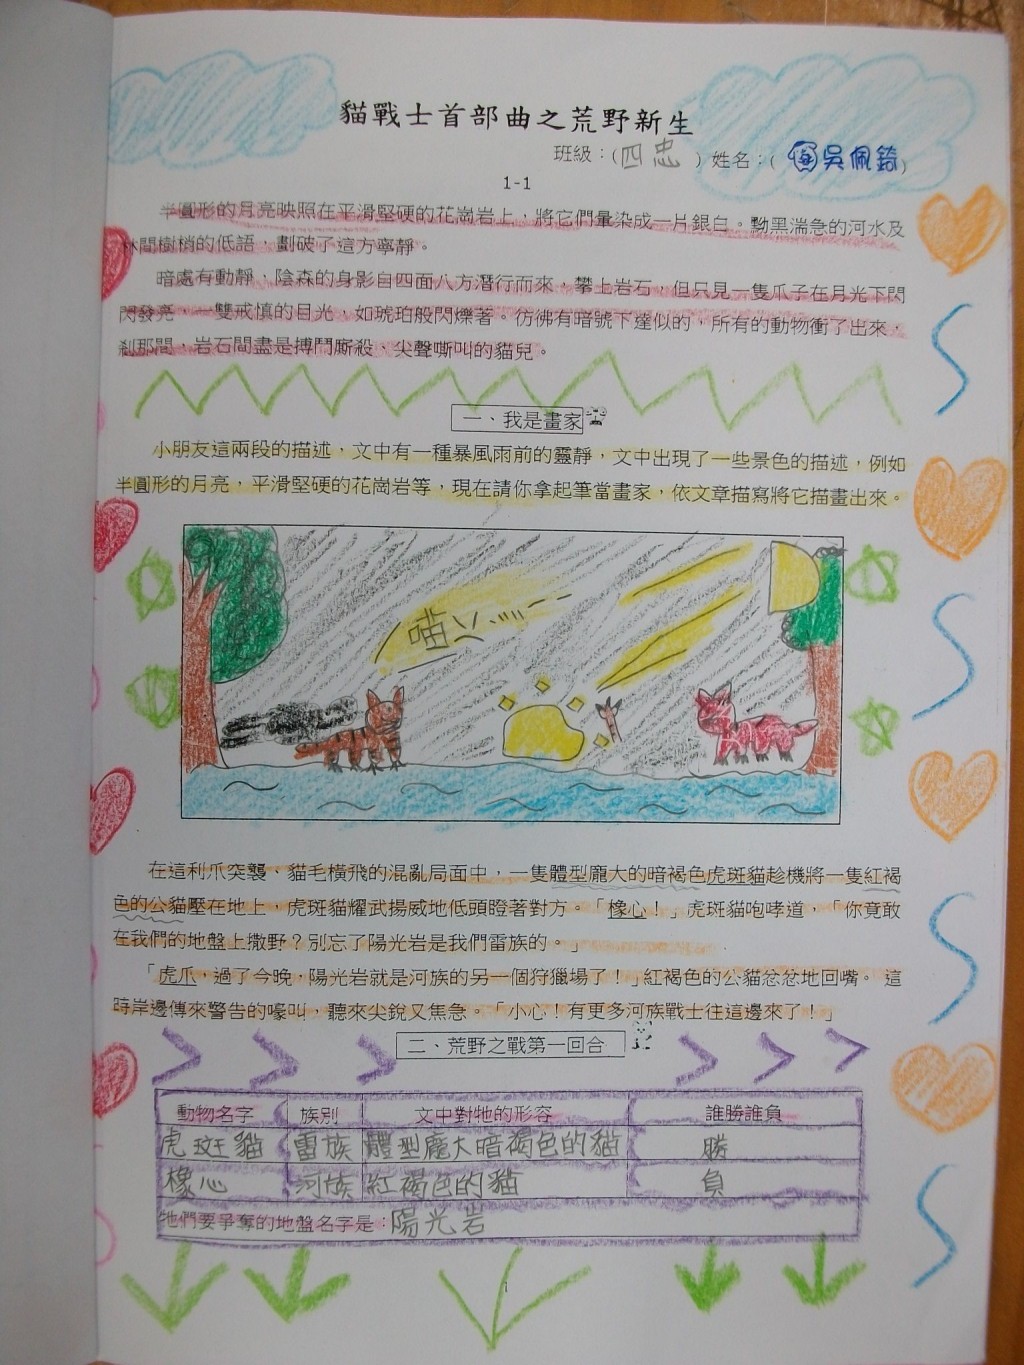 貓戰士首部曲之荒野新生
班級：(四忠) 姓名：(吳佩錡)
1-1
半圓形的月亮映照在平滑堅硬的花崗岩上，將它們暈染成一片銀白。黝黑湍急的河水及
林間樹梢的低語，劃破了這方寧靜。
暗處有動靜，陰森的身影自四面八方潛行而來，攀上岩石，但只見一隻爪子在月光下閃
閃發亮，一雙戒慎的目光，如琥珀般閃爍著。仿彿有暗號下達似的，所有的動物衝了出來，
剎那間，岩石間盡是搏鬥廝殺、尖聲嘶叫的貓兒。
一、我是畫家
小朋友這兩段的描述，文中有一種暴風雨前的靈靜，文中出現了一些景色的描述，例如
半圓形的月亮，平滑堅硬的花崗岩等，現在請你拿起筆當畫家，依文章描寫將它描畫出來。
喵
在這利爪突襲、貓毛橫飛的混亂局面中，一隻體型龐大的暗褐色虎斑貓趁機將一隻紅褐
色的公貓壓在地上，虎斑貓耀武揚威地低頭瞪著對方。「橡心！」虎斑貓咆哮道，「你竟敢
在我們的地盤上撒野？別忘了陽光岩是我們雷族的。」
「虎爪，過了今晚，陽光岩就是河族的另一個狩獵場了！」紅褐色的公貓忿忿地回嘴。 這
時岸邊傳來警告的嚎叫，聽來尖銳又焦急。「小心！有更多河族戰士往這邊來了！」
二、荒野之戰第一回合
動物名字 族別 文中對牠的形容 誰勝誰負
虎斑貓 雷族 體型龐大暗褐色的貓 勝
橡心 河族 紅褐色的貓 負
牠們要爭奪的地盤名字是：陽光岩
1